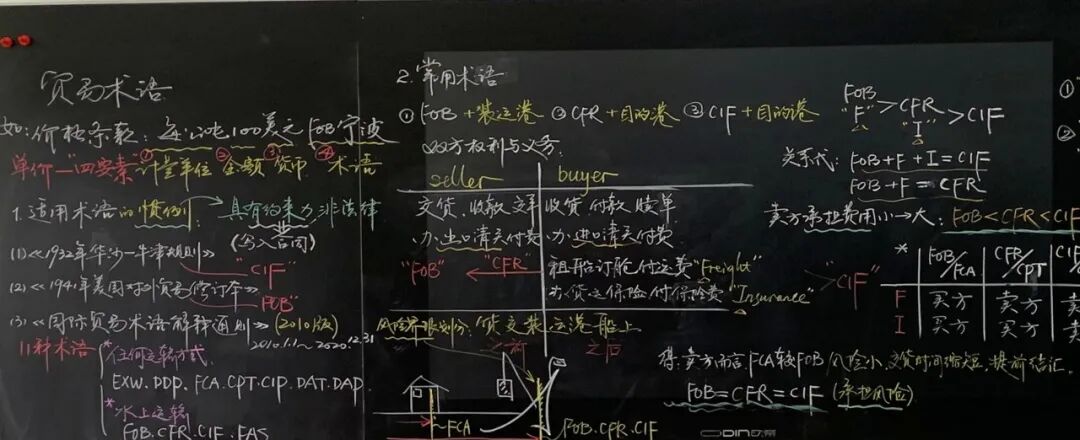 贸易术语
如:价格条款:每公吨100美元FOB宁波
单价—"四要素"①计量单位 ②金额 ③货币 ④术语
1.适用术语的惯例:具有约束力,非法律
(写入合同)
(1)《1932年华沙—牛津规则》
"CIF"
(2)《1941年美国对外贸易修订本》
"FOB"
(3)《国际贸易术语解释通则》(2010版)
2010.1.1~2020.12.31
11种术语
*任何运输方式.
EXW.DDP.FCA.CPT.CIP.DAT.DAP.
*水上运输
FOB.CFR.CIF.FAS
2.常用术语
①FOB+装运港 ②CFR+目的港 ③CIF+目的港
双方权利与义务.
seller buyer
交货.收款.交单 收货.付款.赎单
办出口清关付费 办进口清关付费.
"FOB" "CFR" 租船订舱付运费"Freight"
办货运保险付保险费"Insurance" >"CIF"
风险界限划分:货交装运港船上
之前 之后
~FCA
FOB.CFR.CIF
FOB
"F" >CFR
"I" >CIF
关系式: FOB+F+I=CIF
FOB+F=CFR
卖方承担费用小→大: FOB<CFR<CIF
* FOB/FCA CFR/CPT CIF
F 买方 卖方 卖
I 买方 买方 卖
得:卖方而言,FCA较FOB风险小,交货时间缩短,提前结汇.
FOB=CFR=CIF (承担风险)
①
②
ODIN